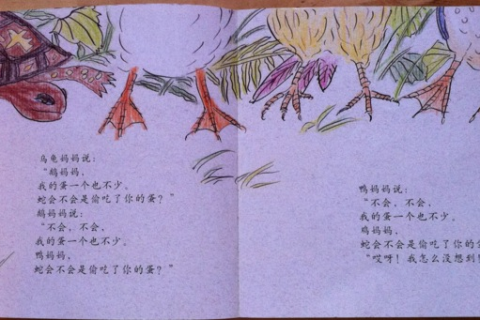 乌龟妈妈说：
“鹅妈妈，
我的蛋一个也不少，
蛇会不会是偷吃了你的蛋？”
鹅妈妈说：
“不会，不会，
我的蛋一个也不少，
鸭妈妈，
蛇会不会是偷吃了你的蛋？”
鸭妈妈说：
“不会，不会，
我的蛋一个也不少，
鸡妈妈，
蛇会不会是偷吃了你的
“哎呀！我怎么没想到！